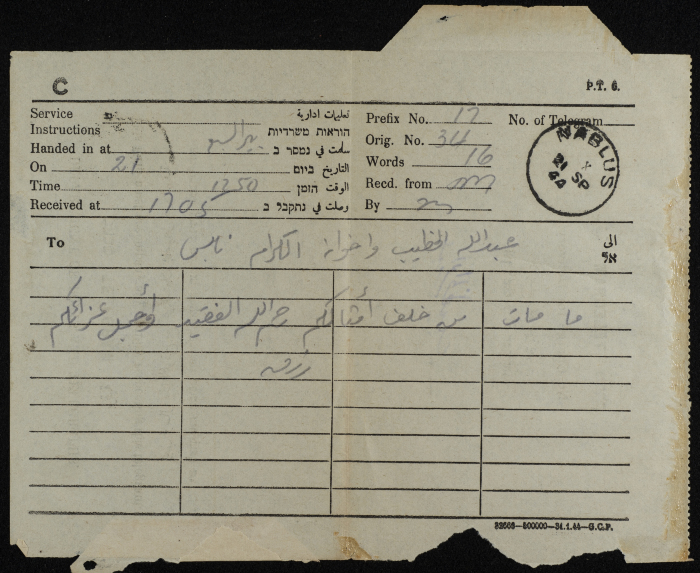 C
P.T. 6.
Service Instructions تعليمات ادارية הוראות משרדיות
Handed in at بير السبع سلمت في נמסר ב
On 21 التاريخ ביום
Time 1250 الوقت הזמן
Received at 1705 وصلت في נתקבל ב
Prefix No. 17 No. of Telegram
Orig. No. 34
Words 16
Recd. from
By
NABLUS
21 SP
44
To عبدالله الخطيب واخوانه الكرام نابلس الى אל
ما مات من خلف أمثالكم رحم الله الفقيد وأجمل عزائكم
رزق
32666—500000—31.1.44—G.C.P.